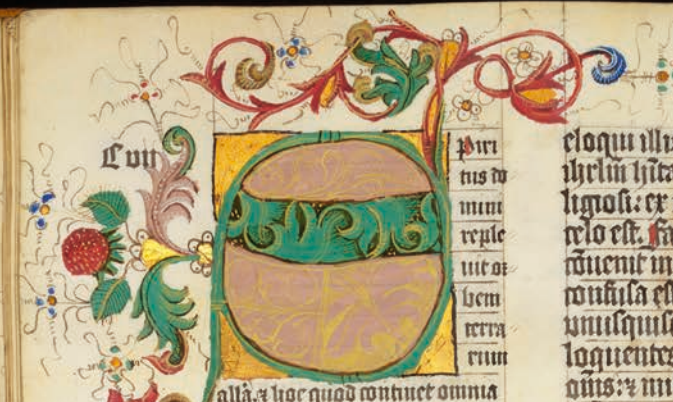 Spiri
tus do
mini
reple
uit or
bem
terra
rum
allã. ⁊ hoc quod continet omnia
eloqui
ihrlm̄ hīta
ligiosi: ex
celo est. Fa
cōuenit m
confusa es
unusquis
loquentes
om̄s: ⁊ mi